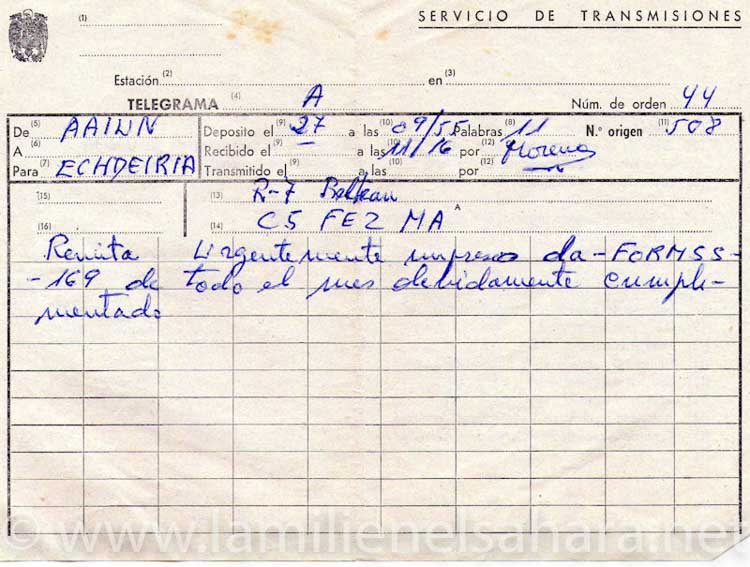 (1)
SERVICIO DE TRANSMISIONES
Estación (2) en (3)
TELEGRAMA (4) A Núm. de orden 44
De (5) AAIUN
A (6)
Para (7) ECHDEIRIA
Deposito el (9) 27 a las (10) 09/55 Palabras (8) 11 N.º origen (11) 508
Recibido el (9) a las (10) 11/16 por (12) Moreno
Transmitido el (9) a las (10) por (12)
(15) (13) R-7 Beltran
(16) (14) C5 FEZ MA A
Remita Urgentemente impreso da-FORMSS-
-169 de todo el mes debidamente cumpli-
mentado
© www.lamilienelsahara.net